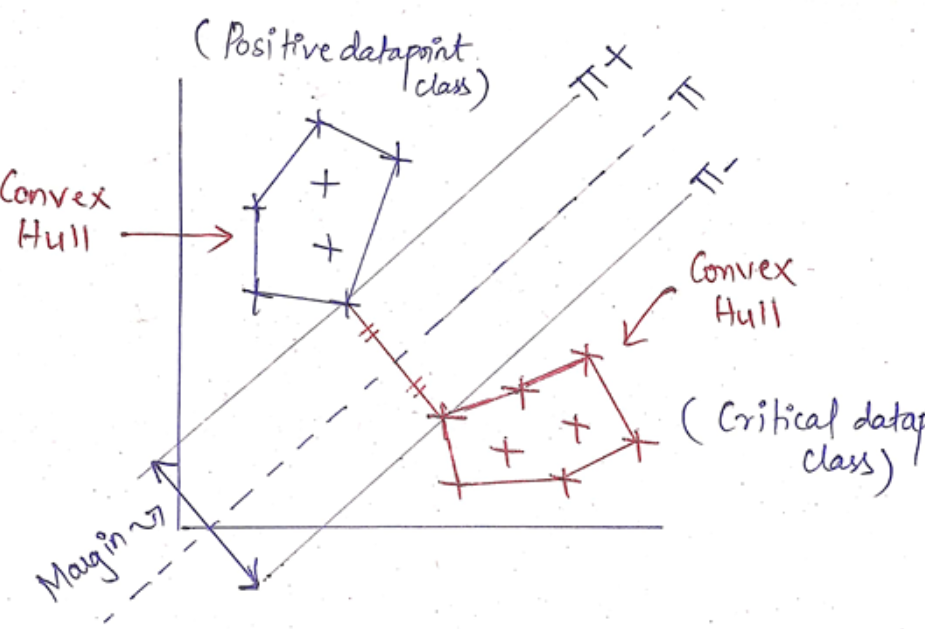 (Positive datapoint
class)
π+
π
π-
Convex
Hull
Convex
Hull
(Critical datap
class)
Margin